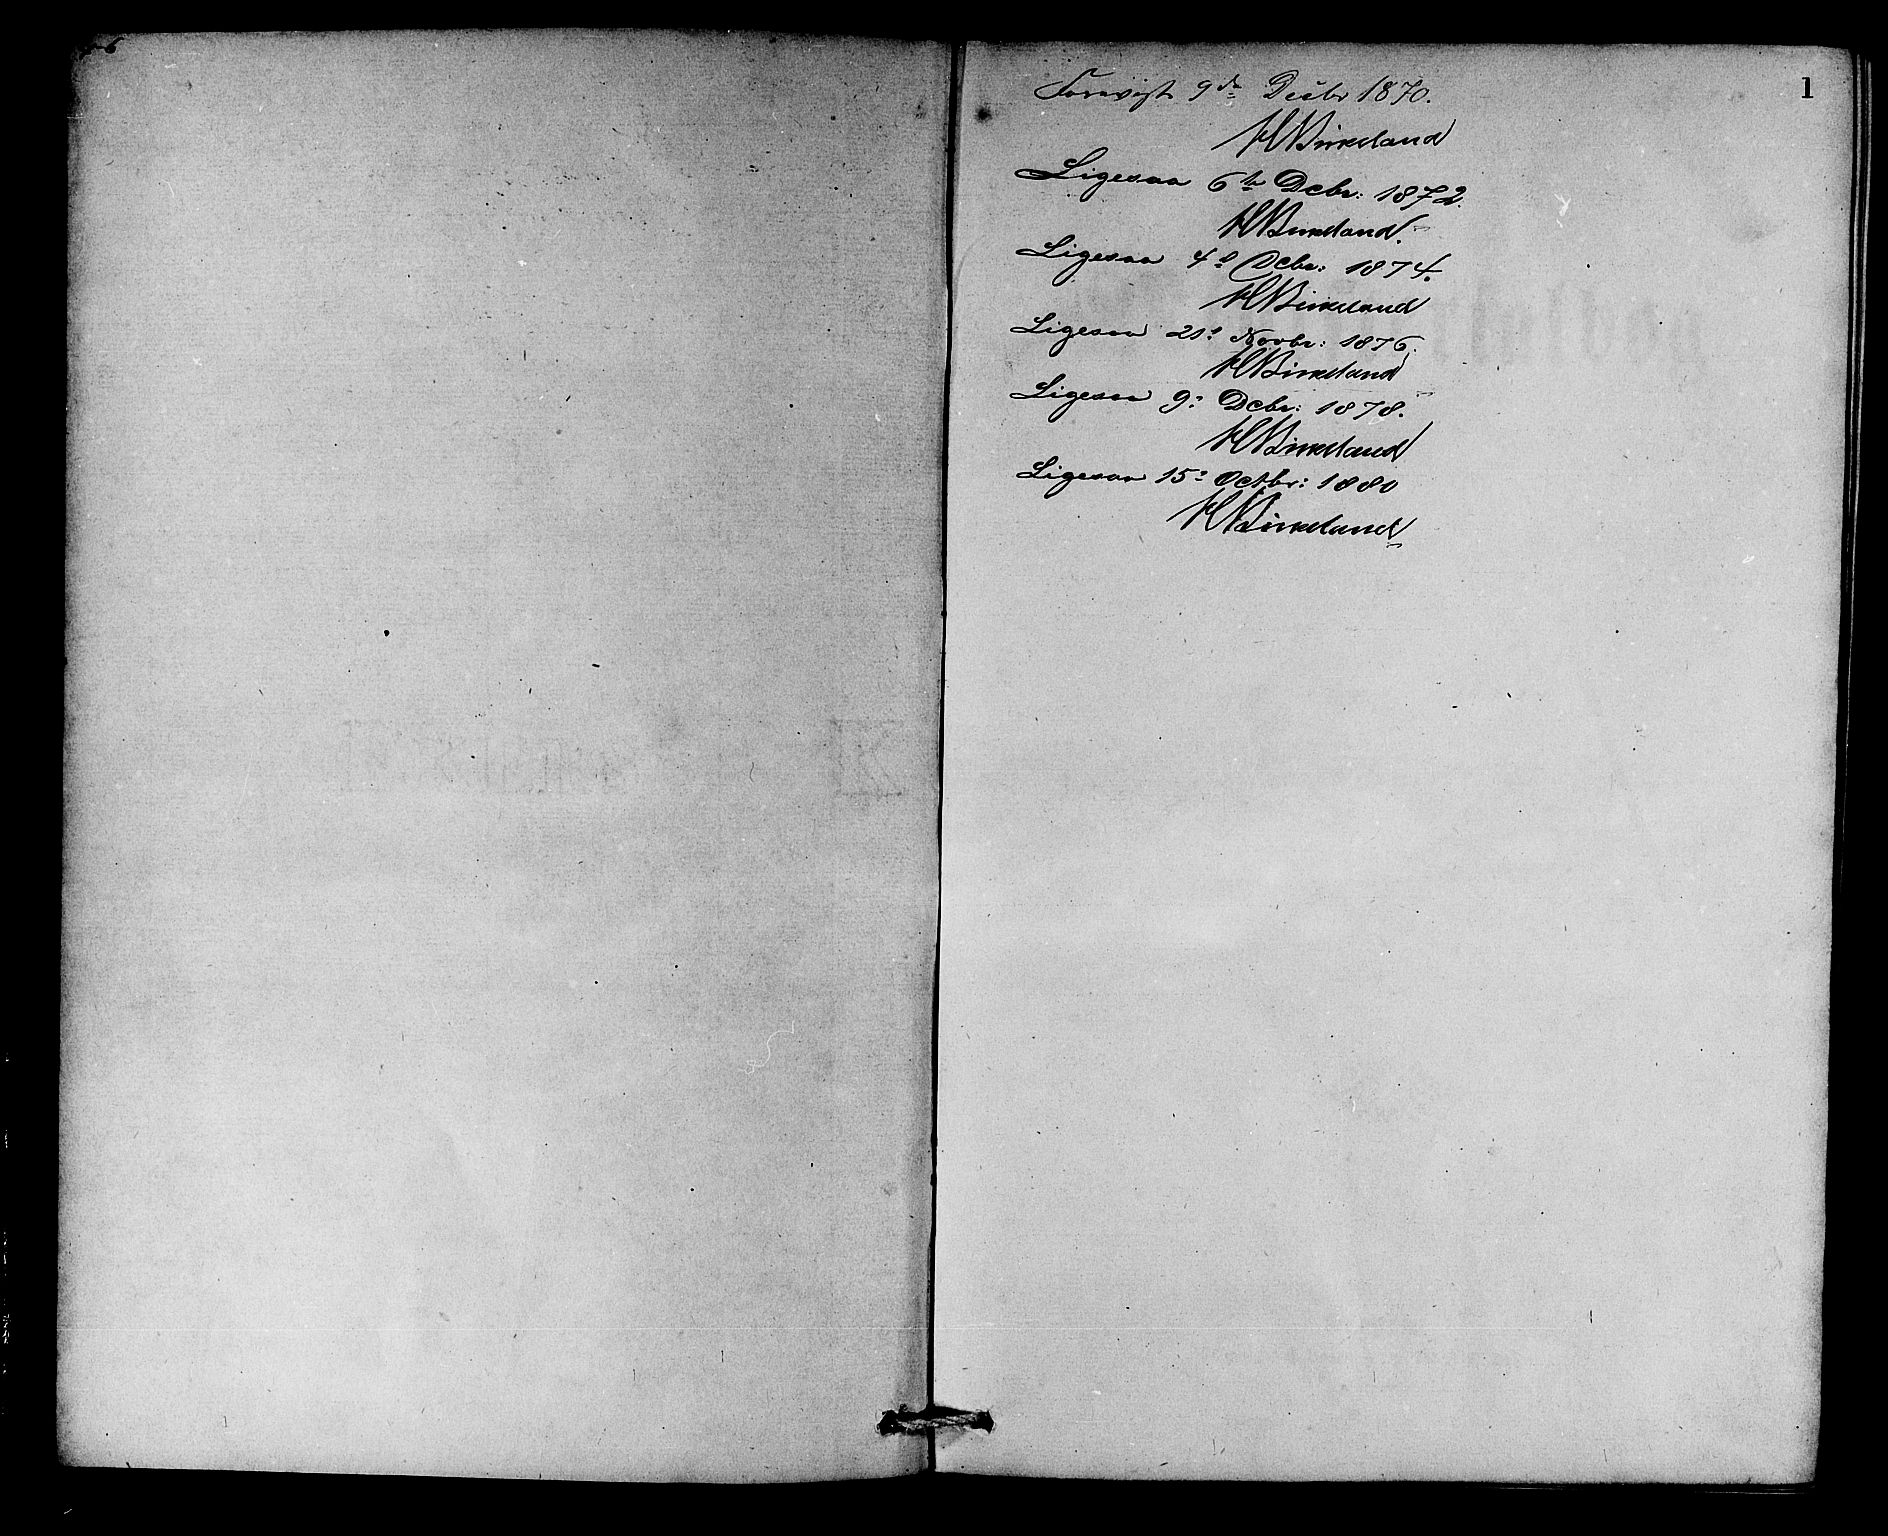 1
Forevist 9de Decbr 1870.
HBirkeland
Ligesaa 6te Dcbr: 1872.
HBirkeland.
Ligesaa 4d Dcbr: 1874.
HBirkeland
Ligesaa 21d Novbr: 1876.
HBirkeland
Ligesaa 9: Dcbr: 1878.
HBirkeland
Ligesaa 15: Octbr: 1880
HBirkeland